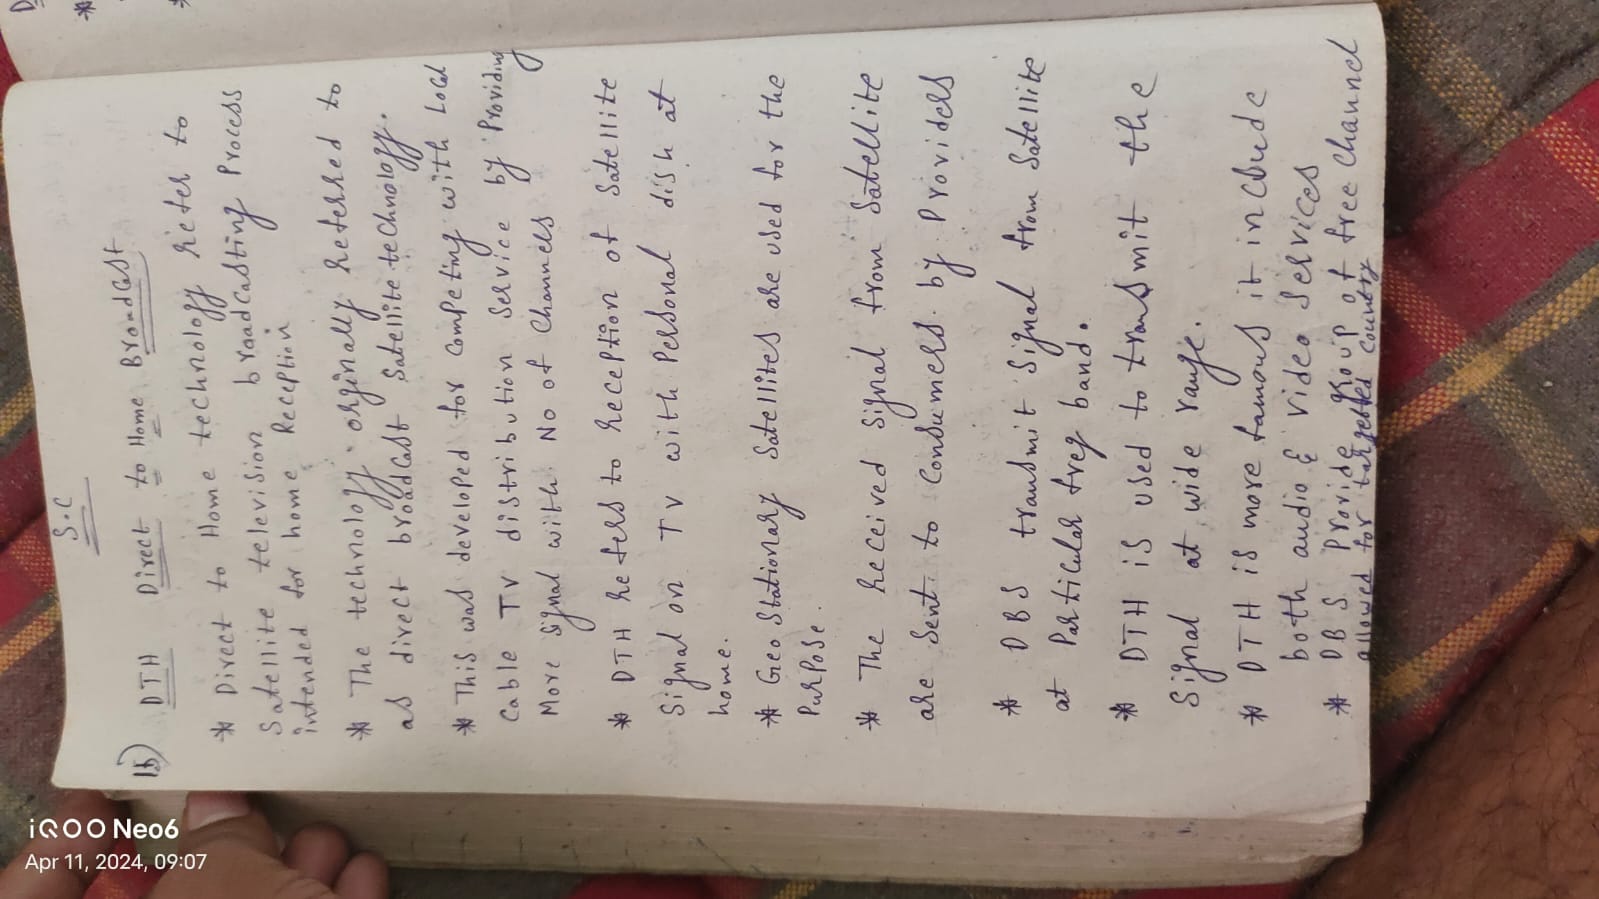 S.C
15) DTH Direct to Home BroadCast
* Direct to Home technology refer to
Satellite television broadcasting Process
intended for home Reception
* The technology orginally referred to
as direct broadcast Satellite technology.
* This was developed for Competing with Local
Cable TV distribution Service by Providing
More Signal with No of Channels
* DTH refers to reception of Satellite
Signal on TV with Personal dish at
home.
* Geo Stationary Satellites are used for the
Purpose.
* The received Signal from Satellite
are Sent to Consumers by Providers
* DBS transmit Signal from Satellite
at Particular freq band.
* DTH is used to transmit the
Signal at wide range.
* DTH is more famous it include
both audio & Video Services
* DBS Provide group of free Channel
allowed for targetted Country
D
*
*
iQOO Neo6
Apr 11, 2024, 09:07